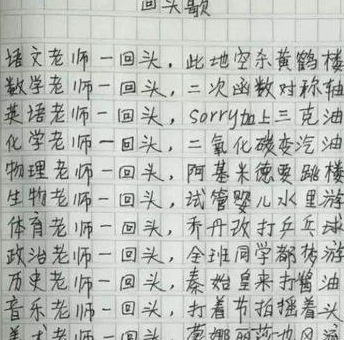 回头歌
语文老师一回头，此地空杀黄鹤楼
数学老师一回头，二次函数对称轴
英语老师一回头，sorry加上三克油
化学老师一回头，二氧化碳变汽油
物理老师一回头，阿基米德要跳楼
生物老师一回头，试管婴儿水里游
体育老师一回头，乔丹改打乒乓球
政治老师一回头，全班同学都梦游
历史老师一回头，秦始皇来打酱油
音乐老师一回头，打着节拍摇着头
美术老师一回头，蒙娜丽莎也风流